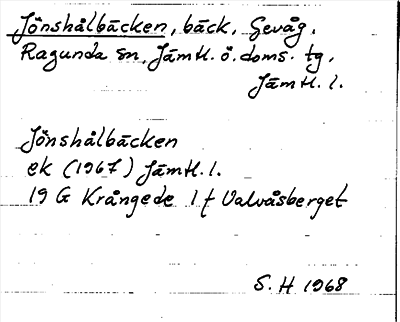 Jönshålbäcken, bäck, Gevåg,
Ragunda sn, Jämtl. ö. doms. tg,
Jämtl. l.
Jönshålbäcken
ek (1967) Jämtl. l.
19 G Krångede 1 f Valvåsberget
S. H 1968